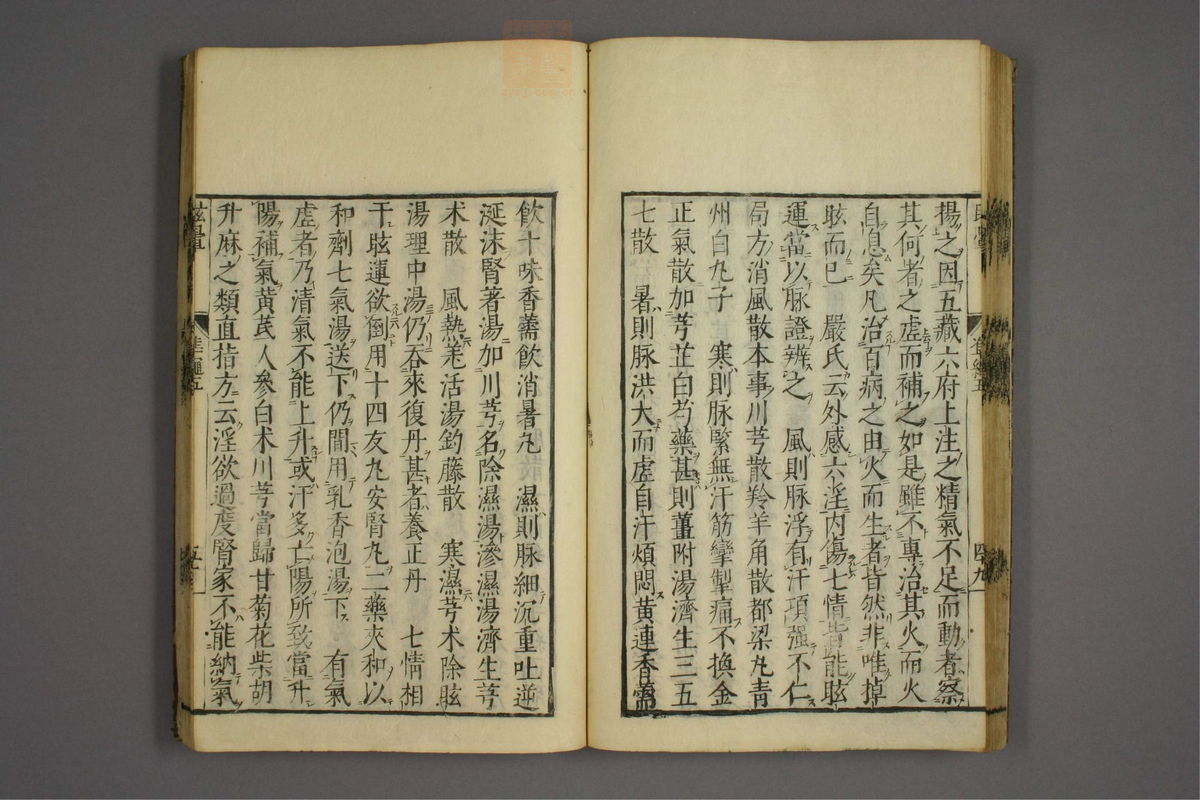 揚之因五藏六府上注之精氣不足而動者察
其何者之虛而補之如是雖不專治其火而火
自息矣凡治百病之由火而生者皆然非唯掉
眩而已　嚴氏云外感六淫内傷七情皆能眩
運當以脉證辨之　風則脉浮有汗項强不仁
局方消風散本事川芎散羚羊角散都梁丸青
州白丸子　寒則脉緊無汗筋攣掣痛不換金
正氣散加芎芷白芍藥甚則薑附湯濟生三五
七散　暑則脉洪大而虛自汗煩悶黄連香薷
四九
飲十味香薷飲消暑丸　濕則脉細沉重吐逆
涎沫腎著湯加川芎名除濕湯滲濕湯濟生芎
术散　風熱羌活湯鈎藤散　寒濕芎术除眩
湯理中湯仍吞來復丹甚者養正丹　七情相
干眩運欲倒用十四友丸安腎丸二藥夾和以
和劑七氣湯送下仍間用乳香泡湯下　有氣
虛者乃清氣不能上升或汗多亡陽所致當升
陽補氣黄芪人參白术川芎當歸甘菊花柴胡
升麻之類直指方云淫欲過度腎家不能納氣
眩暈